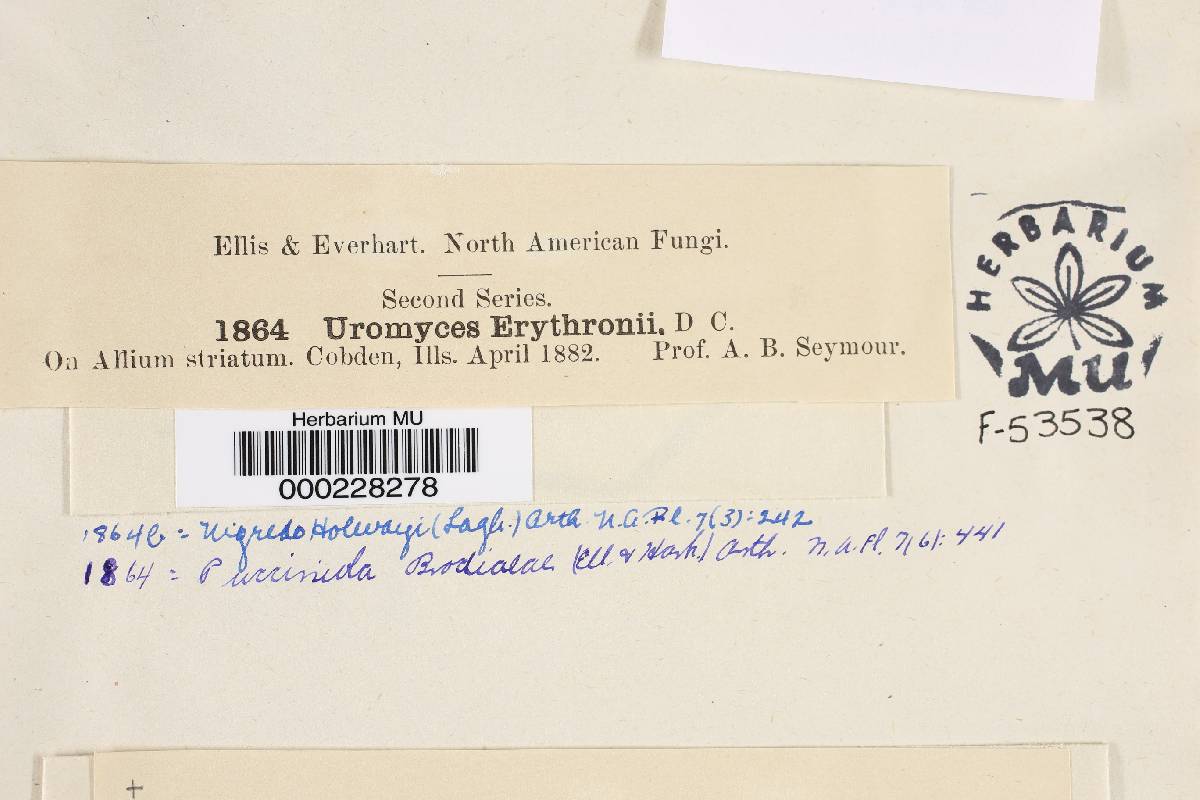 Ellis & Everhart. North American Fungi.
Second Series.
1864 Uromyces Erythronii, D C.
On Allium striatum. Cobden, Ills. April 1882. Prof. A. B. Seymour.
HERBARIUM
MU
F-53538
Herbarium MU
000228278
1864b = Nigredo Holwayi (Lagh.) Arth. N.A.Fl. 7(3):242
1864 = Pucciniola Brodiaeae (Ell & Hark) Arth. N.A.Fl. 7(6):441
+